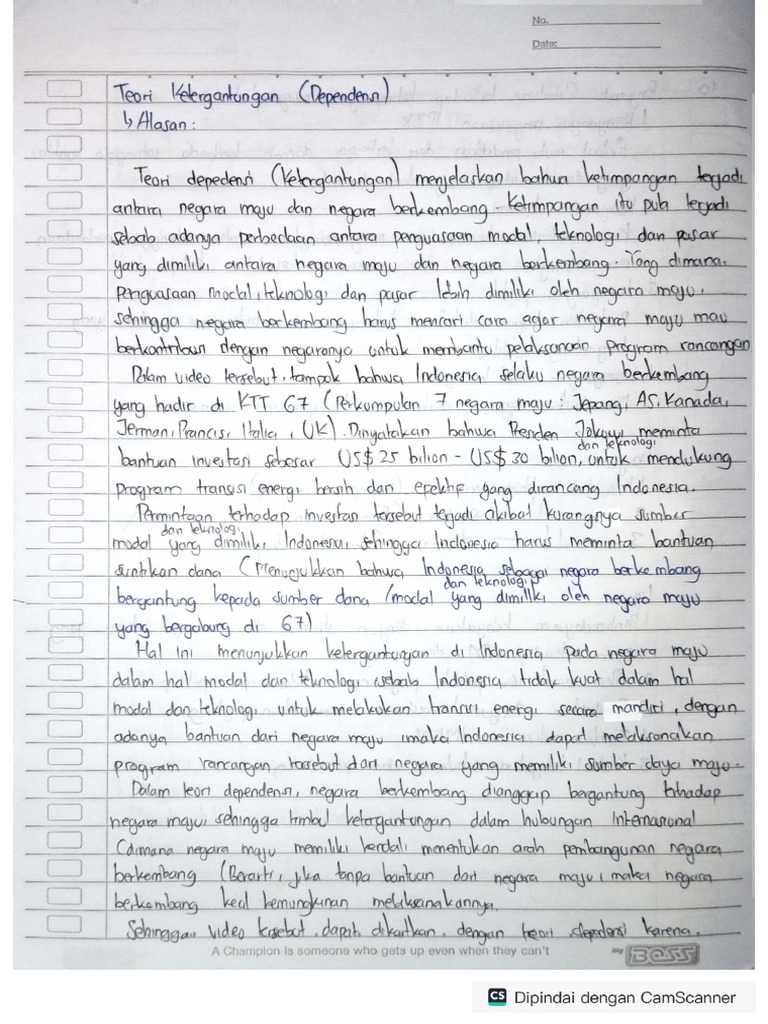 No.
Date:
Teori Ketergantungan (Dependensi)
↳ Alasan :
Teori depedensi (ketergantungan) menjelaskan bahwa ketimpangan terjadi
antara negara maju dan negara berkembang. Ketimpangan itu pun terjadi
sebab adanya perbedaan antara penguasaan modal, teknologi dan pasar
yang dimiliki antara negara maju dan negara berkembang. Yang dimana.
Penguasaan modal, teknologi dan pasar lebih dimiliki oleh negara maju,
sehingga negara berkembang harus mencari cara agar negara maju mau
berkontribusi dengan negaranya untuk membantu pelaksanaan program rancangan
Dalam video tersebut, tampak bahwa Indonesia selaku negara berkembang
yang hadir di KTT G7 (Perkumpulan 7 negara maju : Jepang, AS, Kanada,
Jerman, Prancis, Italia, UK). Dinyatakan bahwa Presiden Jokowi meminta
dan teknologi
bantuan investasi sebesar US$ 25 bilion - US$ 30 bilion, untuk mendukung
program transisi energi bersih dan efektif yang dirancang Indonesia.
Permintaan terhadap investasi tersebut terjadi akibat kurangnya sumber
dan teknologi
modal yang dimiliki Indonesia, sehingga Indonesia harus meminta bantuan
suntikan dana (Menunjukkan bahwa Indonesia sebagai negara berkembang
dan teknologi
bergantung kepada sumber dana /modal yang dimiliki oleh negara maju
yang bergabung di G7)
Hal ini menunjukkan ketergantungan di Indonesia pada negara maju
dalam hal modal dan teknologi, sebab Indonesia tidak kuat dalam hal
modal dan teknologi untuk melakukan transisi energi secara mandiri, dengan
adanya bantuan dari negara maju, maka Indonesia dapat melaksanakan
program rancangan tersebut dari negara yang memiliki sumber daya maju.
Dalam teori dependensi, negara berkembang dianggap bergantung terhadap
negara maju, sehingga timbul ketergantungan dalam hubungan internasional
(dimana negara maju memiliki kendali menentukan arah pembangunan negara
berkembang (Berarti, jika tanpa bantuan dari negara maju, maka negara
berkembang kecil kemungkinan melaksanakannya.
Sehingga, video tersebut dapat dikaitkan dengan teori depedensi karena.
A Champion is someone who gets up even when they can't
by BOSS
CS Dipindai dengan CamScanner